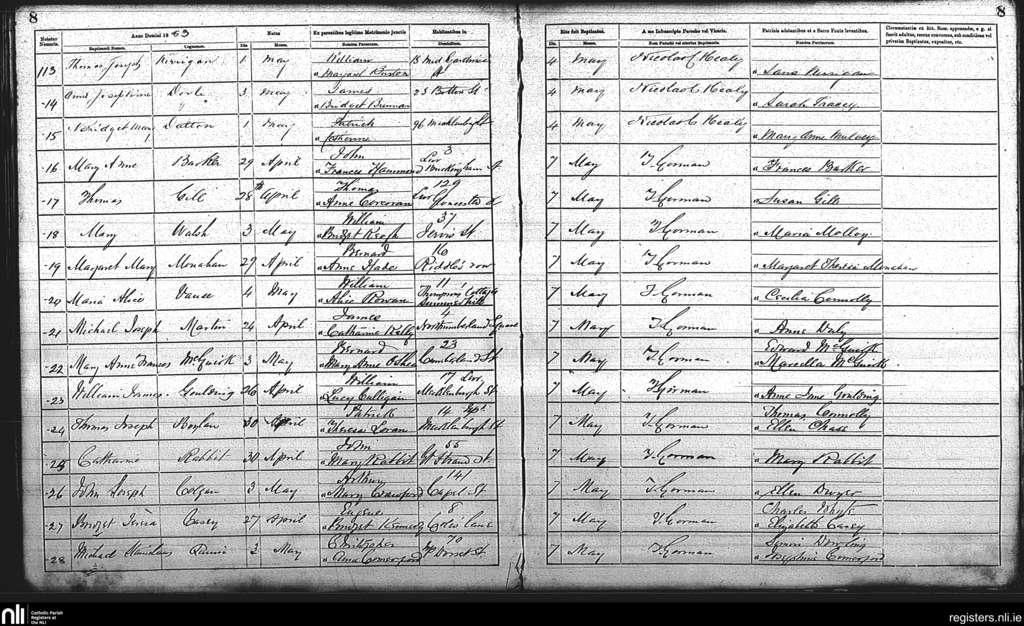 8
8
Anno Domini 1863
Natus
Ex parentibus legitimo Matrimonio junctis
Habitantibus in
Baptizati Nomen.
Cognomen.
Die.
Mense.
Nomina Parentum.
Domicilium.
Rite fuit Baptizatus.
A me Infrascripto Parocho vel Vicario.
Patrinis adstantibus et a Sacro Fonte levantibus.
Die.
Mense.
Nom Parochi vel alterius Baptizantis.
Nomina Patrinorum.
113 Thomas Joseph Kerrigan 1 May William 4 May Nicolao C Healy
Sara Kerrigan
-14 Anne Josephine Doyle 3 May James 23 Bolton St 4 May Nicolao C Healy
Bridget Brennan Sarah Tracey
-15 Bridget Mary Dalton 1 May Patrick 96 Mecklenburg St 4 May Nicolao C Healy
Catherine Mary Anne Mulvey
-16 Mary Anne Barker 29 April John 3 7 May T Gorman
Frances Hammond Lwr Buckingham St Frances Barker
-17 Thomas Gill 28th April Thomas 129 7 May T Gorman
Anne Corcoran Lwr Gloucester St Susan Gill
-18 Mary Walsh 3 May William 37 7 May T Gorman
Bridget Keogh Jervis St Maria Molloy
-19 Margaret Mary Monahan 27 April Bernard 16 7 May T Gorman
Anne Hade Riddles row Margaret Theresa Monahan
-20 Maria Alice Vance 4 May William 11 7 May T Gorman
Alice Rowan Thompsons Cottages Summerhill Cecilia Connolly
-21 Michael Joseph Martin 24 April James 4 7 May T Gorman
Catharine Kelly Northumberland Square Anne Daly
-22 Mary Anne Frances McGuirk 3 May Bernard 23 7 May T Gorman Edward McGuirk
Mary Anne Cumberland St Marcella McGuirk
-23 William James Goulding 26 April William 17 Lwr 7 May T Gorman
Lucy Culligan Mecklenburgh St Anne Jane Goulding
-24 Thomas Joseph 30 April Patrick 14 7 May T Gorman Thomas Connolly
Theresa Mecklenburgh St Ellen Chase
-25 Catharine Rabbit 30 April John 55 7 May T Gorman
Mary Rabbit Strand St Mary Rabbit
-26 John Joseph Colgan 3 May Arthur 141 7 May T Gorman
Mary Crawford Capel St Ellen Dwyer
-27 Bridget Teresa Casey 27 April Eugene 8 7 May T Gorman Charles
Bridget Kennedy Coles lane Elizabeth Casey
-28 Michael Stanislaus 3 May Christopher 70 7 May T Gorman Simon Dowling
Anna Comerford Dorset St Josephine Comerford
nli
Catholic Parish
Registers at
the NLI
registers.nli.ie